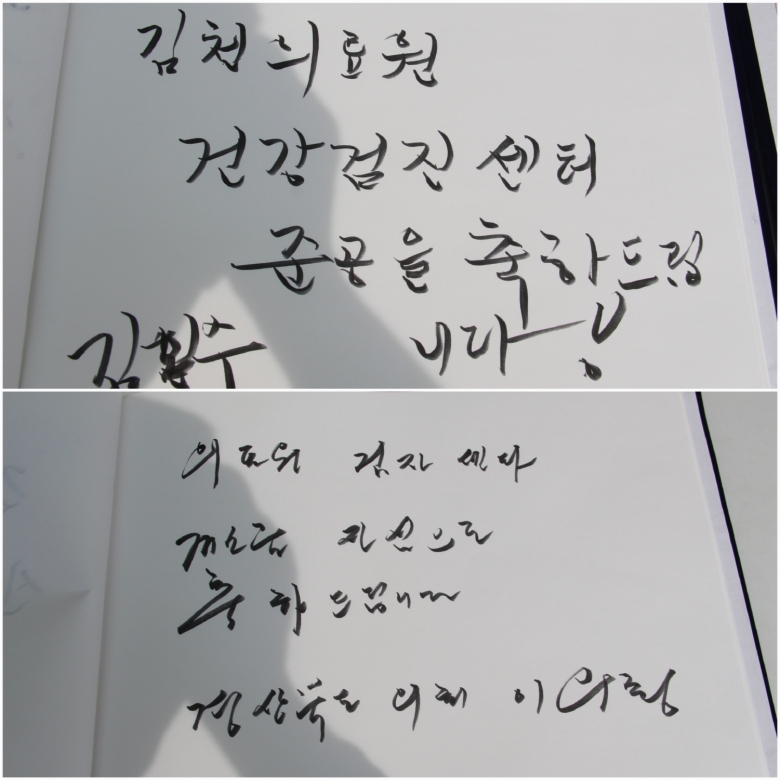 김천의료원
건강검진 센터
준공을 축하드립
니다
김
검진 센타
개소를 진심으로
축하드립니다
경상북도 이